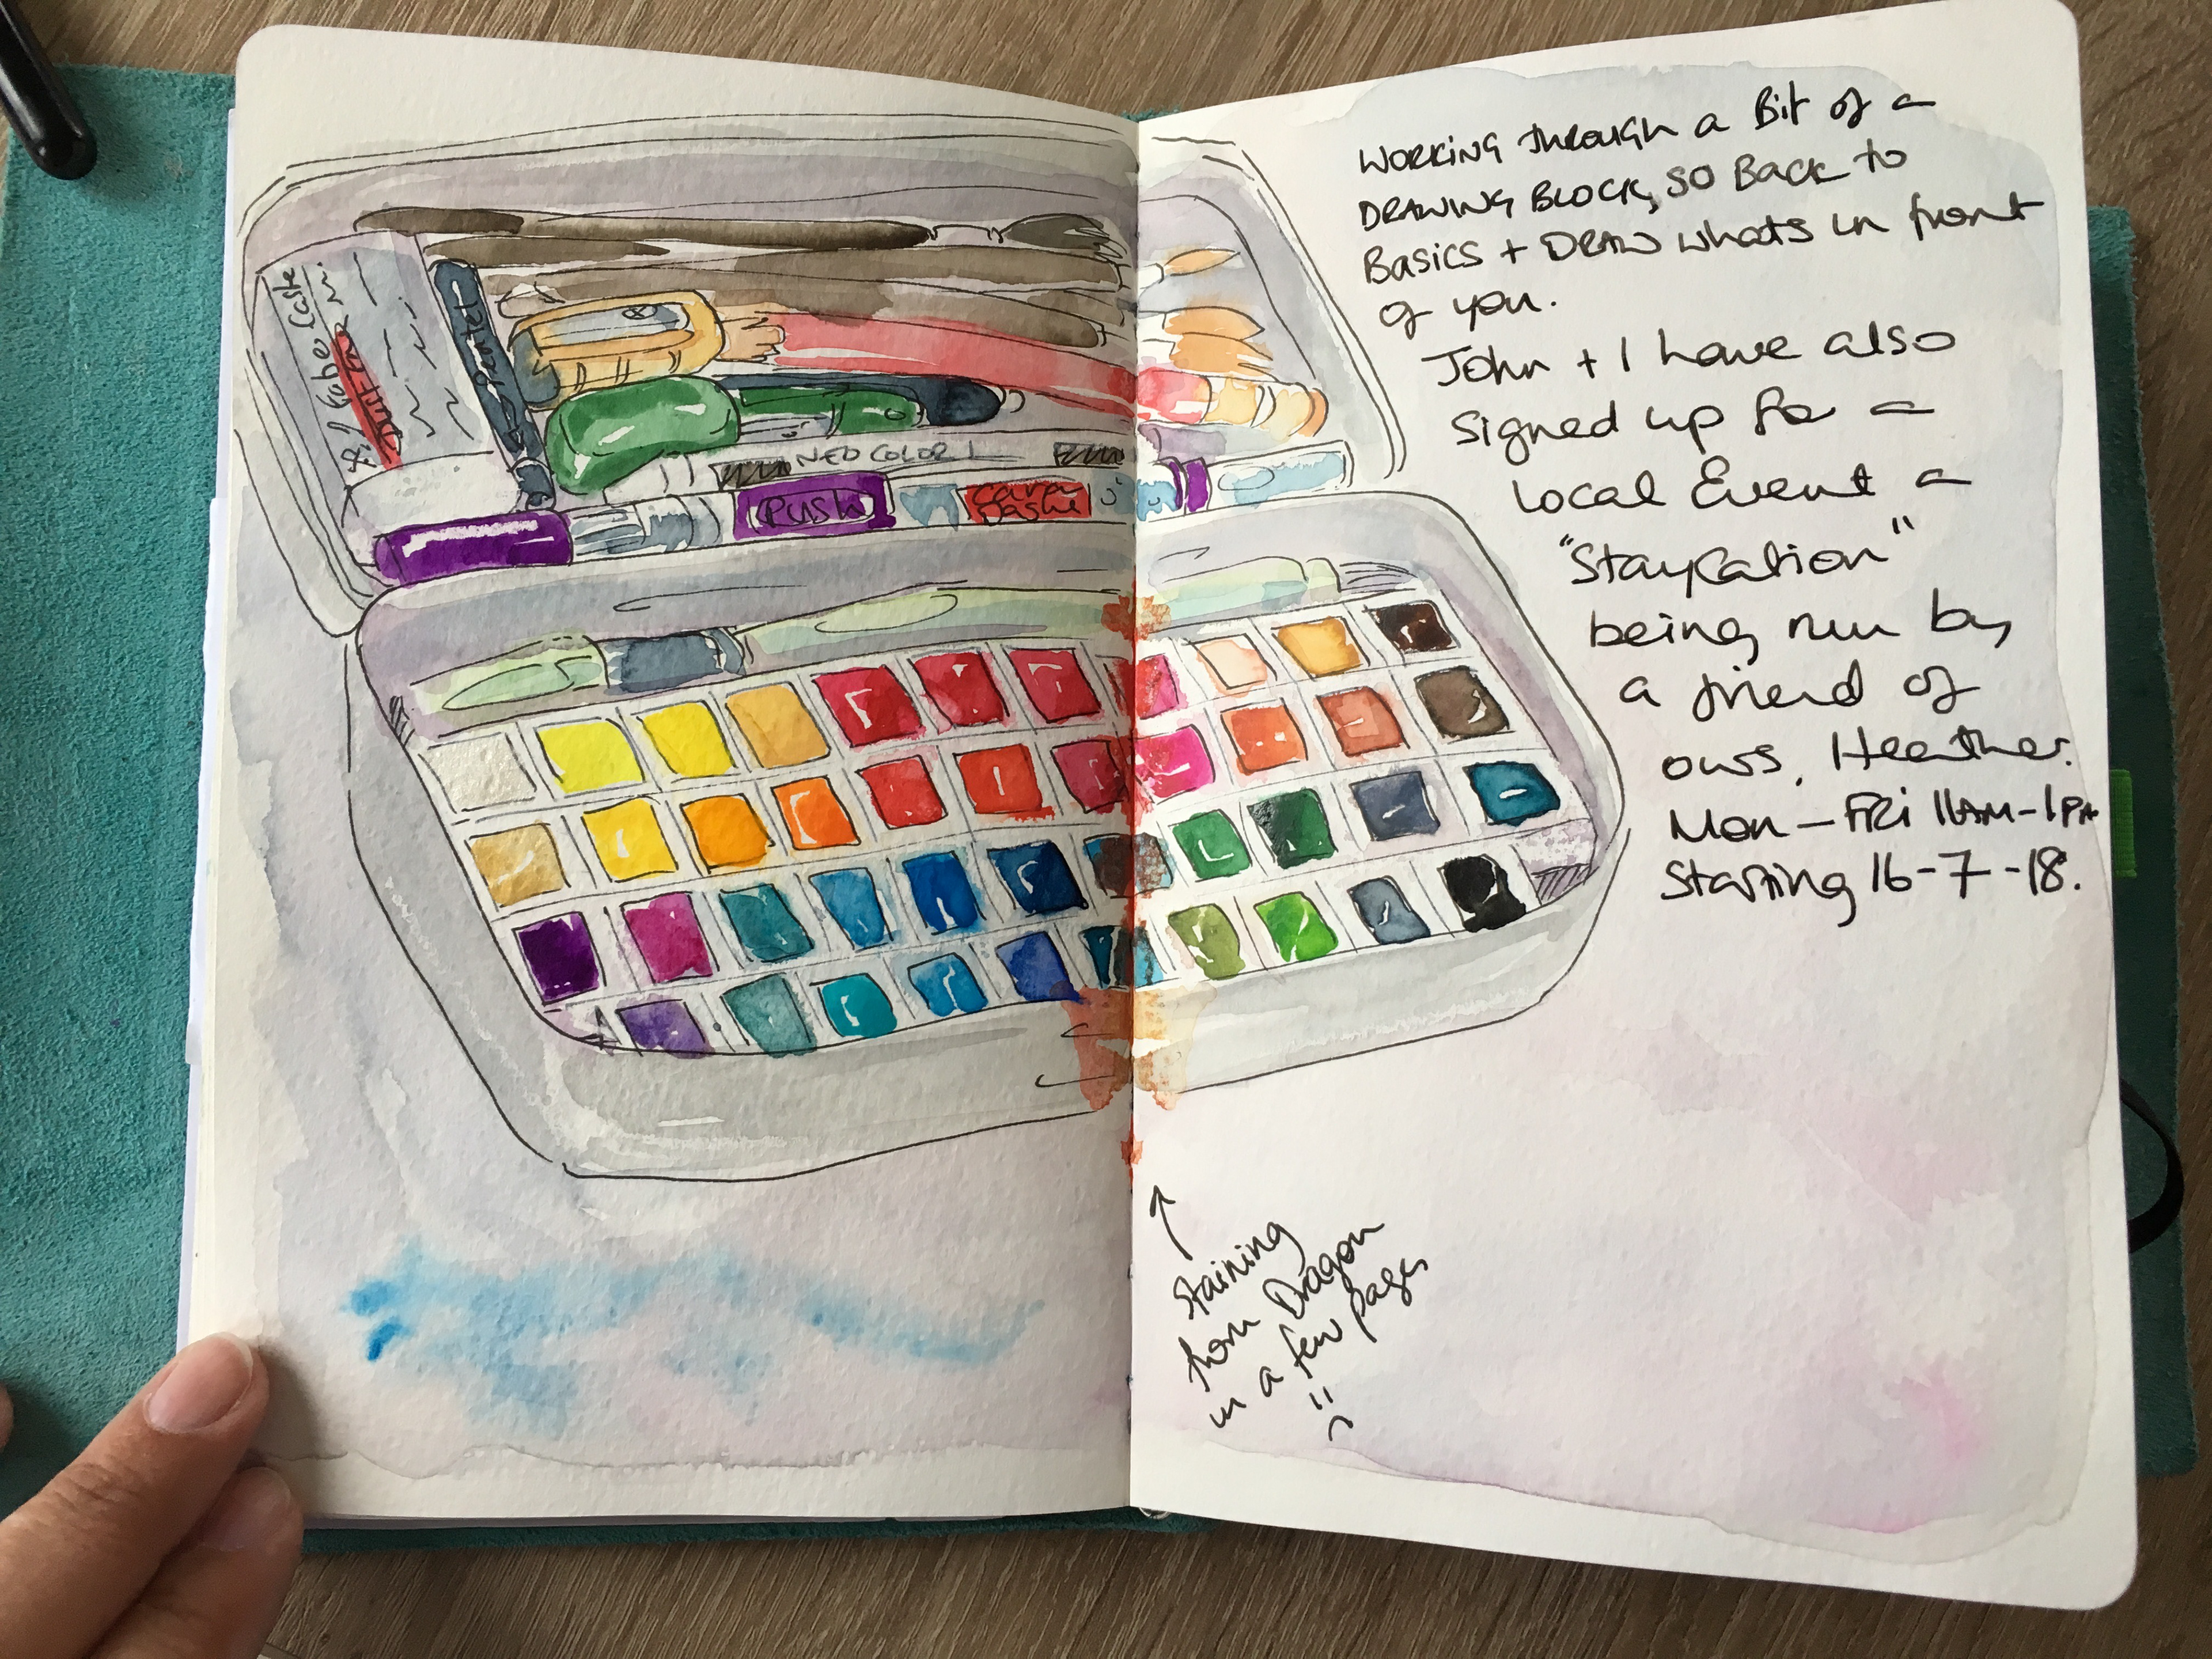 Faber Caste
Pental
NEO COLOR I
PUSH
Caran
Dashe
WORKING through a Bit of a
DRAWING BLOCK, SO BACK to
Basics + DRAW whats in front
of you.
John + I have also
signed up for a
local Event a
"Staycation"
being run by
a friend of
ours, Heather.
Mon - FRi 11AM - 1PM
Starting 16-7-18.
↑
Staining
from Dragon
in a few pages